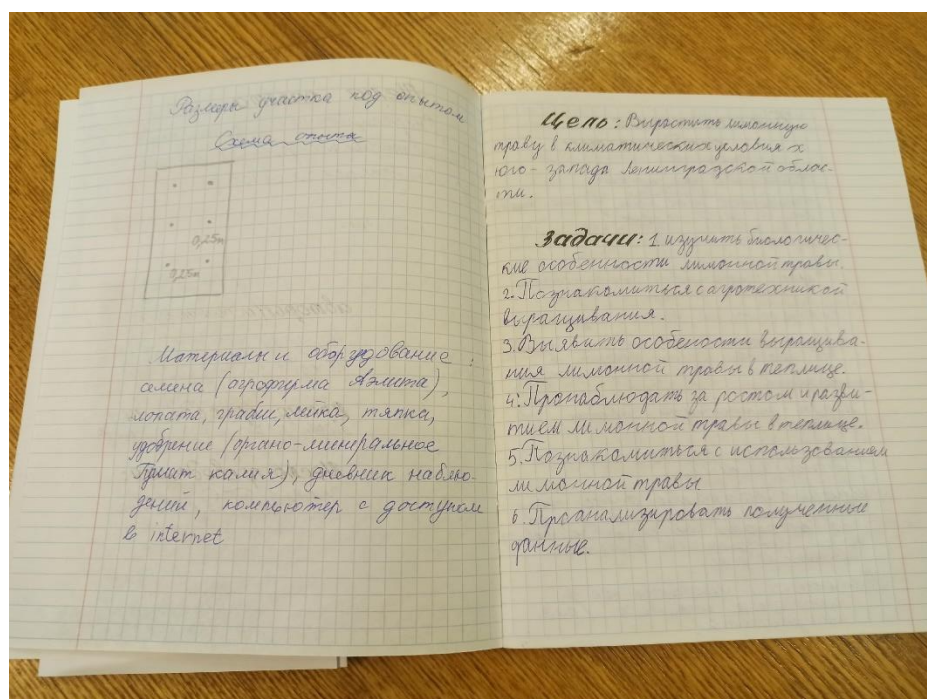 Размеры участка под опытом
Схема опыта
0,25м
0,25м
Материалы и оборудование :
семена (агрофирма Аэлита),
лопата, грабли, лейка, тяпка,
удобрение (органо-минеральное
Гумат калия), дневник наблю-
дений, компьютер с доступом
в internet
Цель: Вырастить лимонную
траву в климатических условия х
юго-запада Ленинградской облас-
ти.
Задачи: 1. изучить биологичес-
кие особенности лимонной травы.
2. Познакомиться с агротехникой
выращивания.
3. Выявить особености выращива-
ния лимонной травы в теплице.
4. Пронаблюдать за ростом и разви-
тием лимонной травы в теплице.
5. Познакомиться с использованием
лимонной травы
6. Проанализировать полученные
данные.